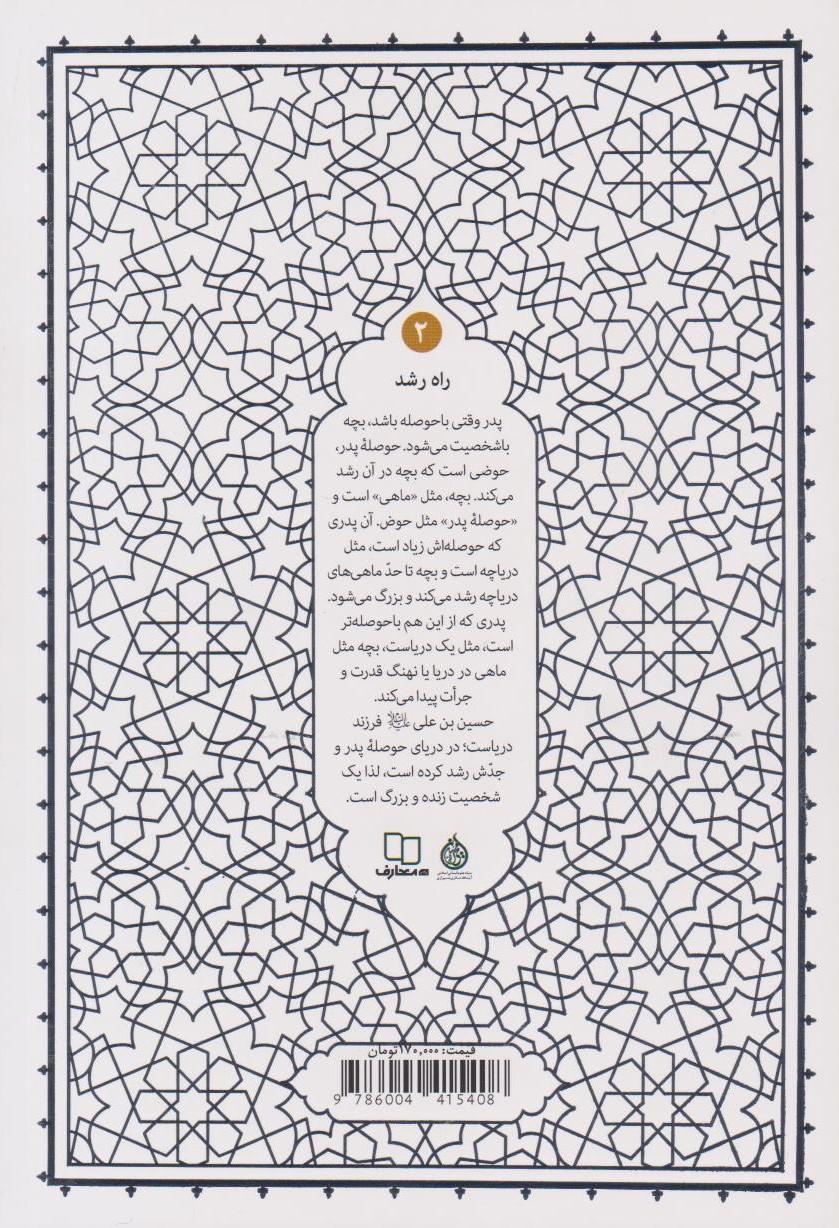 ۲
راه رشد
پدر وقتی باحوصله باشد، بچه
باشخصیت می‌شود. حوصلهٔ پدر،
حوضی است که بچه در آن رشد
می‌کند. بچه، مثل «ماهی» است و
«حوصلهٔ پدر» مثل حوض. آن پدری
که حوصله‌اش زیاد است، مثل
دریاچه است و بچه تا حدّ ماهی‌های
دریاچه رشد می‌کند و بزرگ می‌شود.
پدری که از این هم باحوصله‌تر
است، مثل یک دریاست، بچه مثل
ماهی در دریا یا نهنگ قدرت و
جرأت پیدا می‌کند.
حسین بن علی علیه‌السلام فرزند
دریاست؛ در دریای حوصلهٔ پدر و
جدّش رشد کرده است، لذا یک
شخصیت زنده و بزرگ است.
معارف
قیمت: ۱۷۰,۰۰۰تومان
9 786004 415408